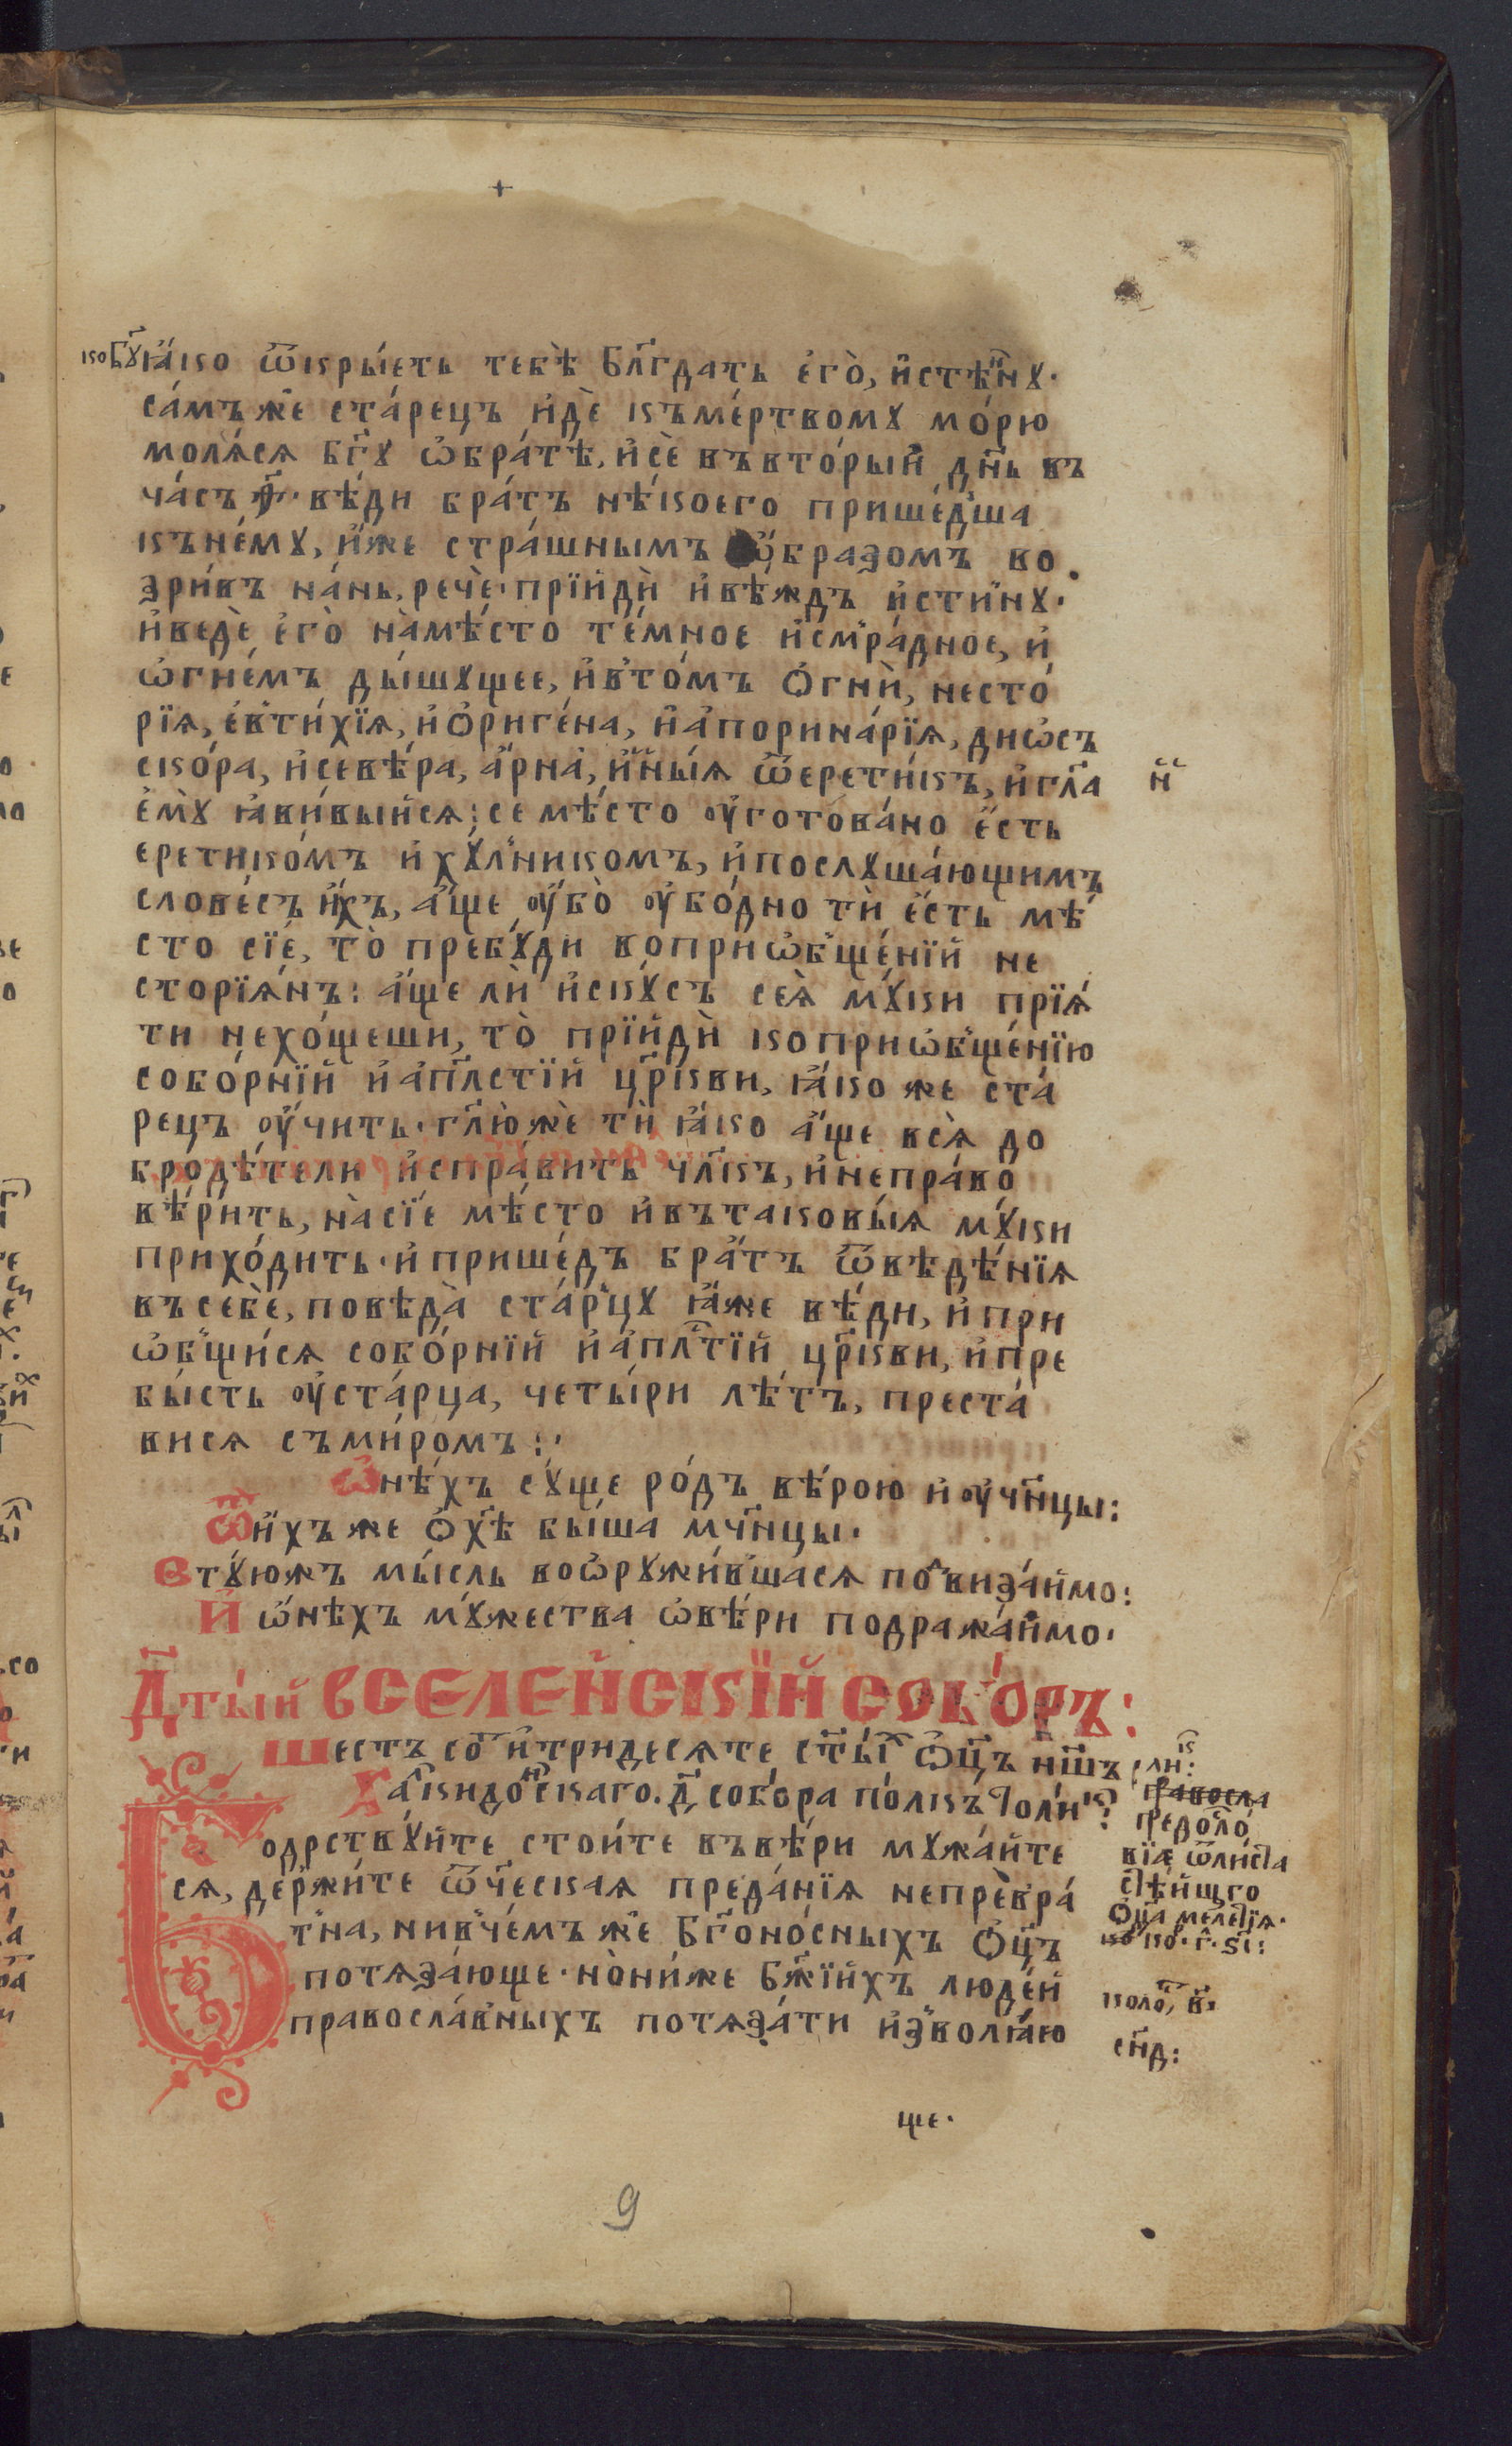 ко бг҃ꙋ ꙗ҆́ко ѿкрыетъ тебѣ̀ бл҃гдать є҆го̀, и҆стѣ́ннꙋ.
са́мъ же ста́рецъ и҆́де къ ме́ртвомꙋ мо́рю
моля́ся бг҃ꙋ ѡ҆ бра́тѣ, и҆ сѐ въ вторы́й дн҃ь въ
ча́съ ѳ҃. вѣ́ди бра́тъ нѣ́коего прише́дша
къ не́мꙋ, и҆́же стра́шнымъ ѡ҆́бразомъ во
зри́въ на́нь, речѐ. прїйдѝ и҆ вѣ́ждъ и҆́стинꙋ.
и҆ ведѐ є҆го̀ на мѣ́сто те́мное и҆ смра́дное, и҆
ѡ҆гне́мъ ды́шꙋщее, и҆ в то́мъ ѻ҆гнѝ, несто́
рїя, є҆вти́хїя, и҆ ѻ҆риге́на, и҆ а҆порина́рїя, диѡс
ско́ра, и҆ севѣ́ра, а҆́риа, и҆ и҆ны́я ѿ ерети́къ, и҆ гл҃а
и҆
є҆мꙋ̀ ꙗ҆ви́выйся: се мѣ́сто ᲂу҆гото́вано є҆́сть
еретико́мъ и҆ хꙋ́лникомъ, и҆ послꙋша́ющимъ
слове́съ и҆́хъ, а҆́ще ᲂу҆́бо ᲂу҆бо́дно тѝ є҆́сть мѣ́
сто сїе́, то̀ пребꙋ́ди во приѡбще́нїй не
сторїя́нъ: а҆́ще лѝ и҆скꙋ́съ сея̀ мꙋ́ки прїя́
ти не хо́щеши, то̀ прїйдѝ ко приѡбще́нїю
собо́рнїй и҆ а҆пⷭ҇лстїй цр҃кви, ꙗ҆́ко же ста́
рецъ ᲂу҆́читъ. гл҃ю жѐ тѝ ꙗ҆́ко а҆́ще вся̀ до
бродѣ́тели и҆спра́витъ чл҃къ, и҆ не пра́во
вѣ́ритъ, на сїе́ мѣ́сто и҆ въ таковы́я мꙋ́ки
прихо́дитъ. и҆ прише́дъ бра́тъ ѿ вѣдѣ́нїя
въ себѐ, повѣ́да ста́рцꙋ ꙗ҆́же вѣ́ди, и҆ при
ѡбщи́ся собо́рнїй и҆ а҆пⷭ҇лтїй цр҃кви, и҆ пре
бы́сть ᲂу҆ ста́рца, четы́ри лѣ́тъ, преста́
вися съ ми́ромъ:
Ѡ҆нѣ́хъ сꙋще ро́дъ вѣ́рою и҆ ᲂу҆чн҃цы:
Ѿ ни́хъ же ѻ҆ хѣ҃ бы́ша мч҃нцы.
В тꙋ́южъ мы́сль воѡрꙋжи́вшася подвиза́ймо:
И҆ ѡ҆нѣхъ мꙋ́жества ѡ҆ вѣ́ри подража́ймо.
Д҃ тый вселенскїй собо́ръ:
шестъ со҇т и҆ тридесяте ст҃ы́й ѻ҆ц҃ъ нш҃ъ
Халкидонскаго. д҃ собо́ра
Бодрствꙋ́йте стои́те въ вѣ́ри мꙋжа́йте
ся, держи́те ѿческая преда́нїя непревра́
тна, ни в че́мъ же бг҃оно́сныхъ ѻ҆ц҃ъ
потяза́юще. но ни́же бж҃їйхъ люде́й
правосла́вныхъ потяза́ти и҆зволѧ́ю
правосла
вїѧ
ѻ҆ц҃а мелетїя.
ще.
9